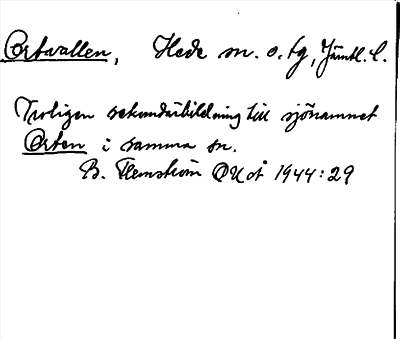 Ortvallen, Hede sn. o. tg, Jämtl. l.
Troligen sekundärbildning till sjönamnet
Orten i samma sn.
B. Flemström OUoÅ 1944:29